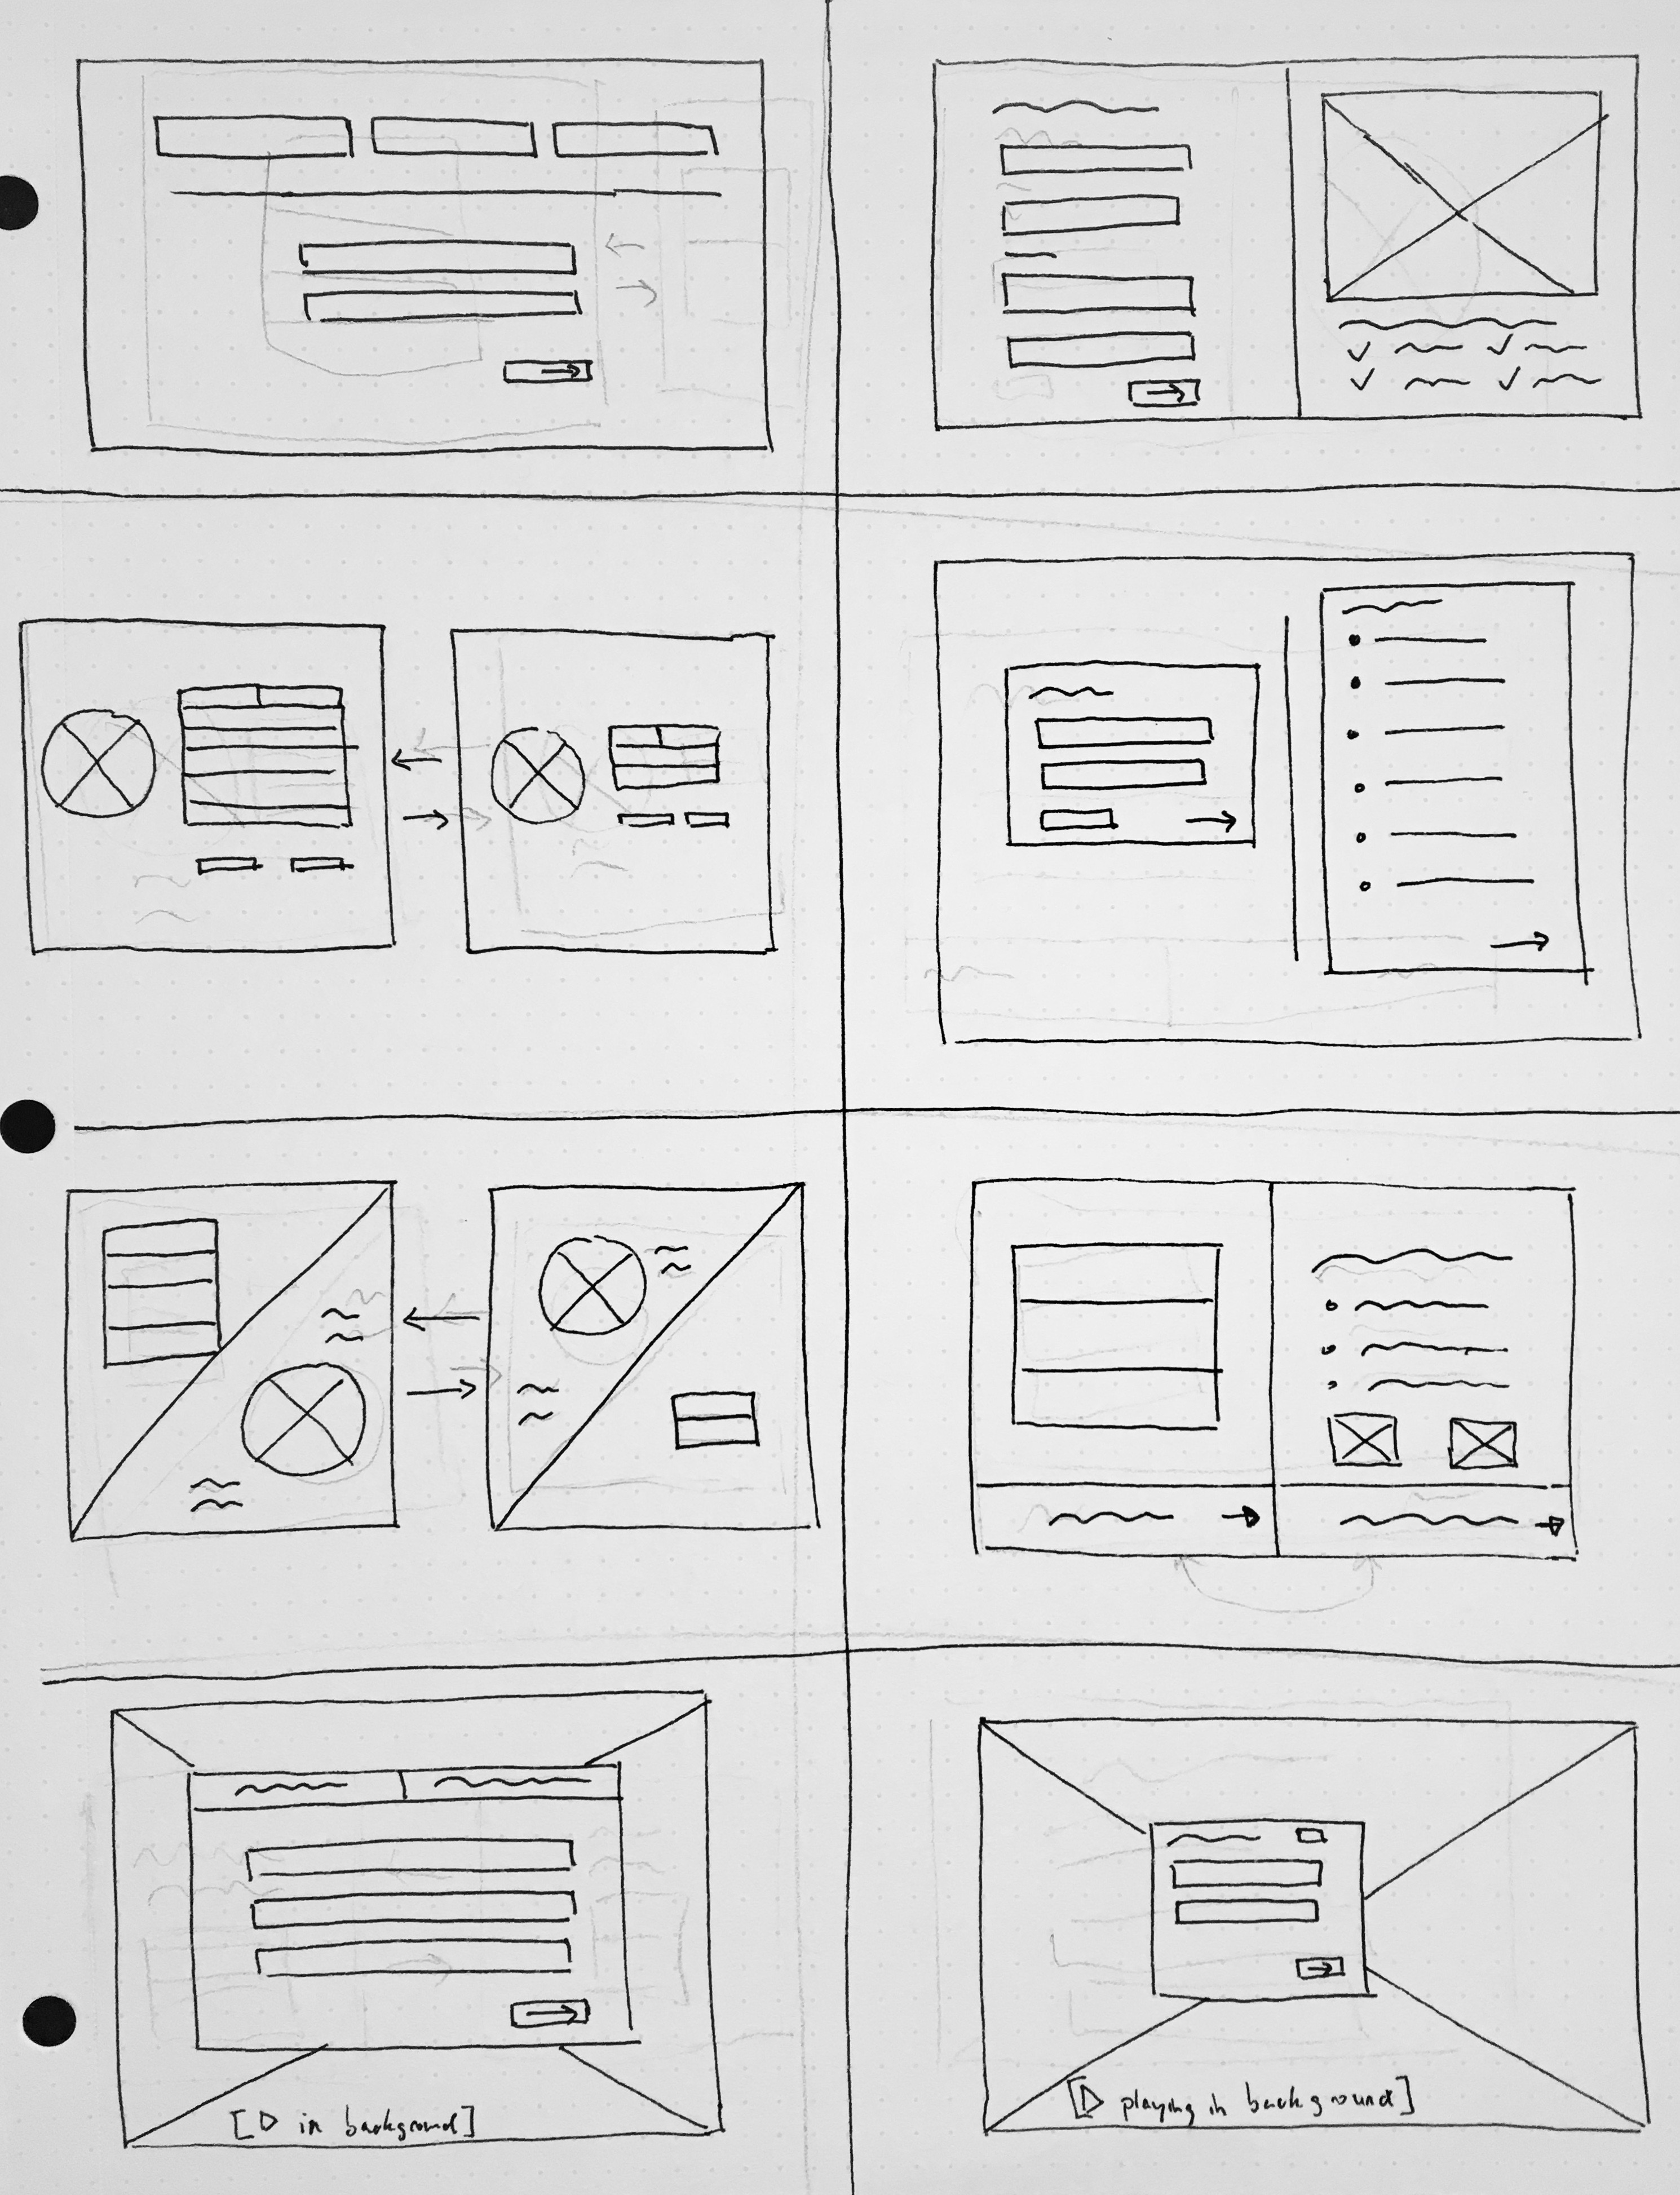 [▷ in background]
[▷ playing in background]